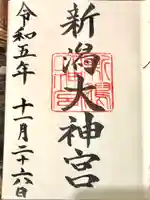 新潟大神宮
令和五年 十一月二十六日